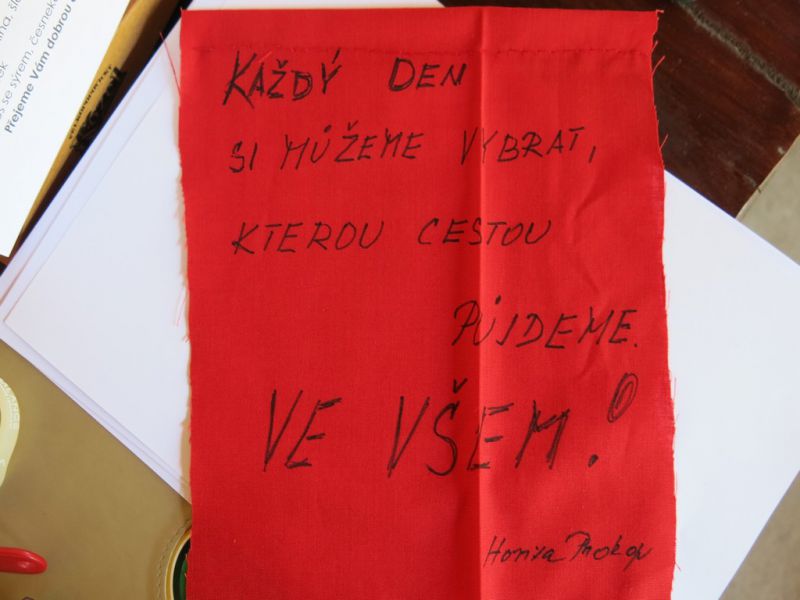 KAŽDÝ DEN
SI MŮŽEME VYBRAT,
KTEROU CESTOU
PŮJDEME.
VE VŠEM!
Honza Prokop
s se sýrem, česnek
Přejeme Vám dobrou